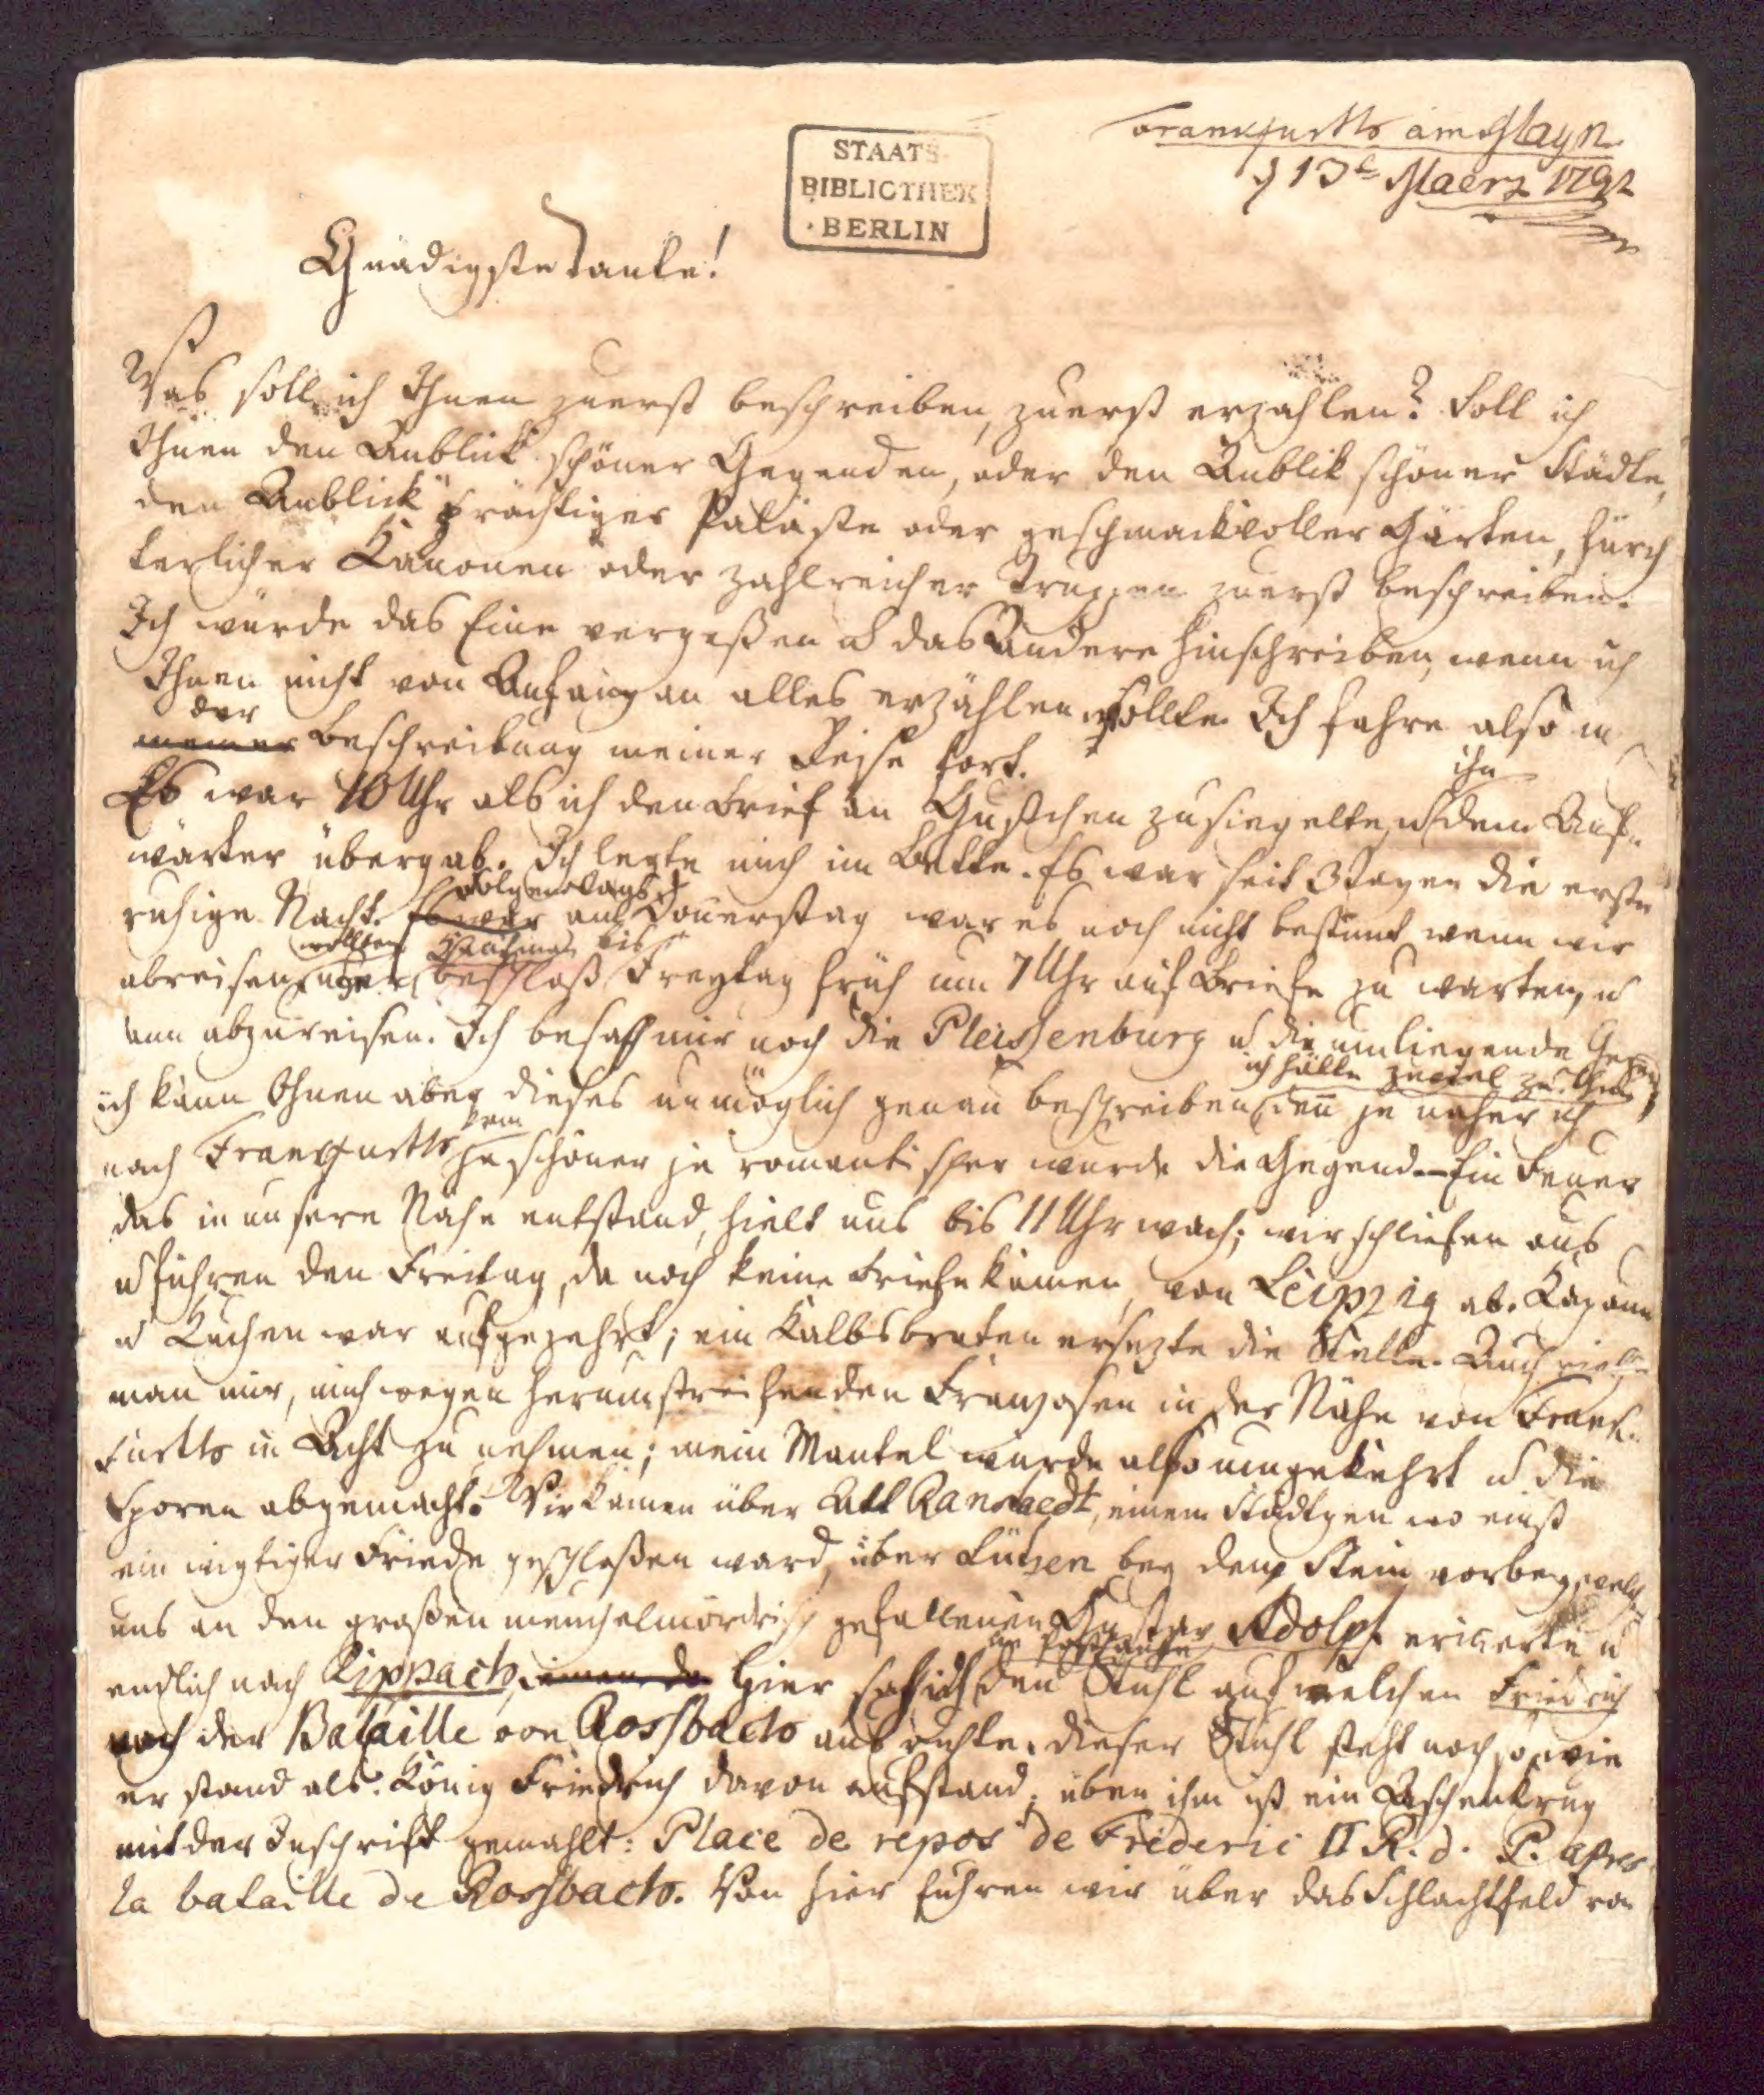 Frankfurth am Mayn
d 13t Maerz 1792
STAATS
BIBLIOTHEK
BERLIN
Gnädigste Tante!
Was soll ich Ihnen zuerst beschreiben, zuerst erzählen? Soll ich
Ihnen den Anblick schöner Gegenden, oder den Anblik schöner Städte,
den Anblick prächtiger Paläste oder geschmackvoller Gärten, fürch
terlicher Kanonen oder zahlreicher Truppen zuerst beschreiben.
Ich würde das Eine vergeßen u das Andere hinschreiben, wenn ich
Ihnen nicht von Anfang an alles erzählen wollte. Ich fahre also in
der
meiner Beschreibung meiner Reise fort.
ihn
Es war 10 Uhr als ich den Brief an Gustchen zusiegelte, u dem Auf-
wärter übergab. Ich legte mich im Bette. Es war seit 3 Tagen die erste
folgendags
ruhige Nacht. Es war auf Donnerstag war es noch nicht bestimt wenn wir
wollten bis
abreisen, beschloß Freytag früh um 7 Uhr auf Briefe zu warten, u
dann abzureisen. Ich besah mir noch die Pleissenburg u die umliegende Gegend
ich hätte zuviel zu thun
ich kann Ihnen aber dieses unmöglich genau beschreiben, den je näher ich
kam
nach Franckfurth je schöner je romantischer wurde die Gegend. — Ein Feuer
das in unsere Nähe entstand, hielt uns bis 11 Uhr wach; wir schliefen aus
u fuhren den Freitag, da noch keine Briefe kamen, von Leipzig ab. Kapaun
u Kuchen war aufgezehrt; ein Kalbsbraten ersezte die Stelle. Auch rieth
man mir, mich wegen herumstreifenden Franzosen in der Nähe von Franck-
furth in Acht zu nehmen; mein Mantel wurde also umgekehrt u die
Sporen abgemacht. Wir kamen über Alt Ranstaedt, einem Städtgen wo einst
ein wigtiger Friede geschloßen ward, über Lützen bey dem Stein vorbey, welch
uns an den großen meuchelmördrisch gefallenen Gustav Adolph erinerte u
im Posthause
endlich nach Rippach, Hier sah ich den Stuhl auf welchen Friedrich
nach der Bataille von Rossbach ausruhte. Dieser Stuhl steht noch so, wie
er stand als König Friedrich davon aufstand; über ihm ist ein Aschenkrug
mit der Inschrift gemahlt: Place de repos de Frederic II R. d. P. apres
la bataille de Rossbach. Von hier fuhren wir über das Schlachtfeld von